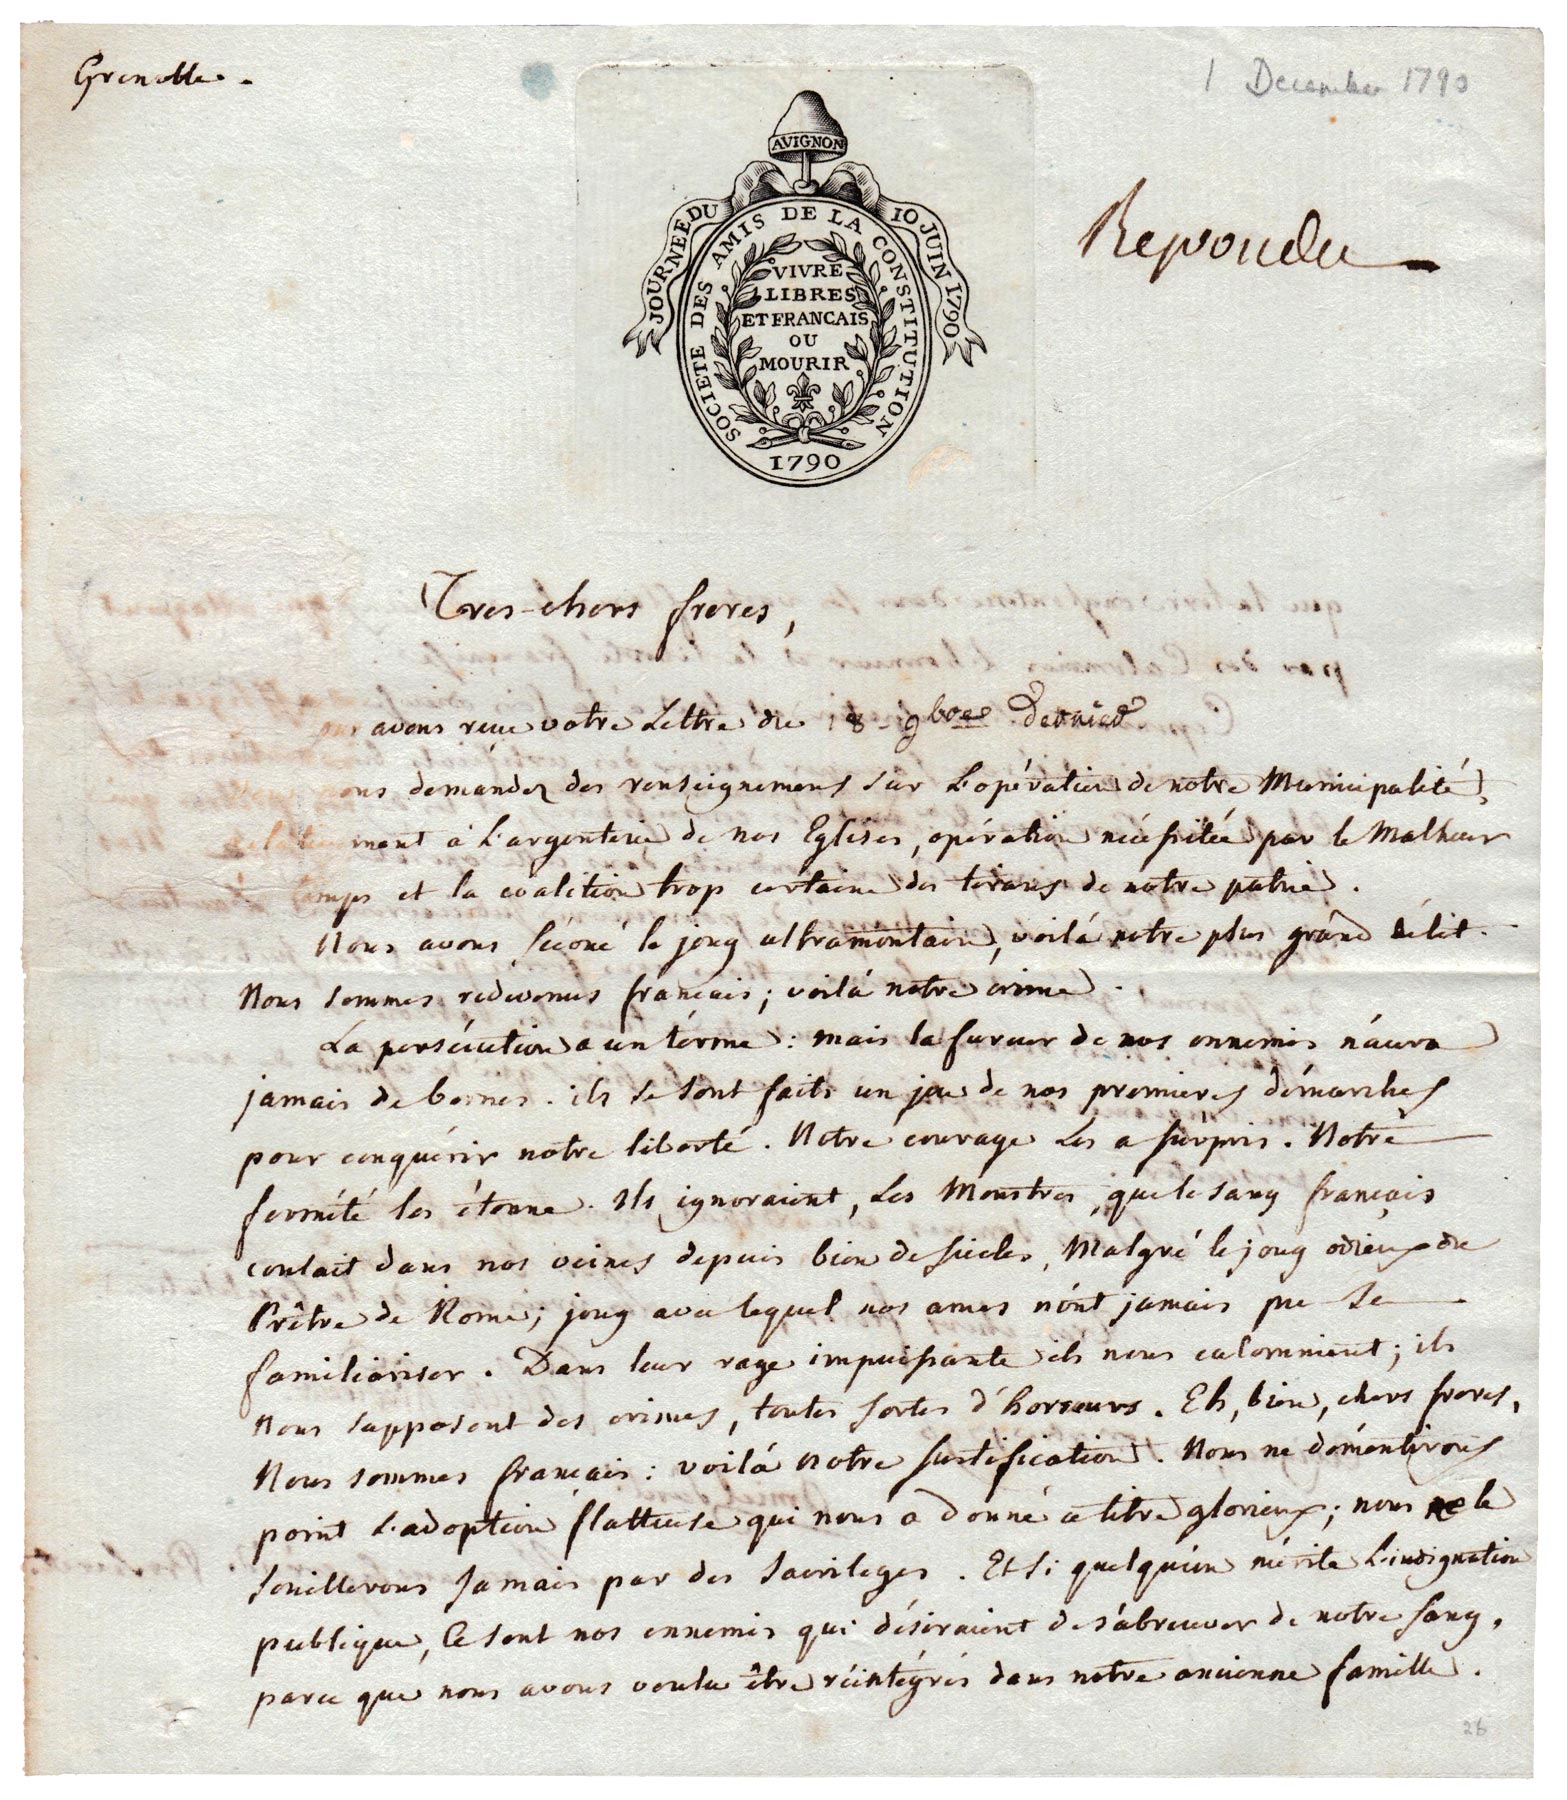 Grenoble.
1 December 1790
Repondu
AVIGNON
JOURNEE DU 10 JUIN 1790
SOCIETE DES AMIS DE LA CONSTITUTION
VIVRE
LIBRES
ET FRANCAIS
OU
MOURIR
1790
Tres-chers freres,
avons reçu votre Lettre du 18 9bre Dernier
ous demandez des renseignemens sur L'opération de notre Municipalité,
relativement à L'argenterie de nos Eglises, opération nécessitée par le Malheur
temps et la coalition trop certaine des tirans de notre patrie.
Nous avons sécoué le joug ultramontain, voilá notre plus grand délit.
Nous sommes redevenus français; voilá notre crime.
La persécution a un térme: mais la fureur de nos ennemis n'aura
jamais de bornes. ils se sont faits un jeu de nos premieres démarches
pour conquérir notre liberté. Notre courage Les a surpris. Notre
fermété les étonne. Ils ignoraient, Les Monstres, que le sang français
coulait dans nos veines depuis bien de siècles, Malgré le joug odieux du
Prêtre de Rome; joug avec lequel nos ames n'ont jamais pu se
familiariser. Dans leur rage impuissante ils nous calomnient; ils
Nous supposent des crimes, toutes sortes d'horreurs. Eh, bien, chers freres,
Nous sommes français: voilá notre justification. Nous ne démentirons
point L'adoption flatteuse qui nous a donné ce titre glorieux; nous ne le
souillerons jamais par des sacrileges. Et si quelqu'un mérite L'indignation
publique, Ce sont nos ennemis qui désiraient de s'abreuver de notre sang,
parce que nous avons voulu être réintégrés dans notre ancienne famille.
26